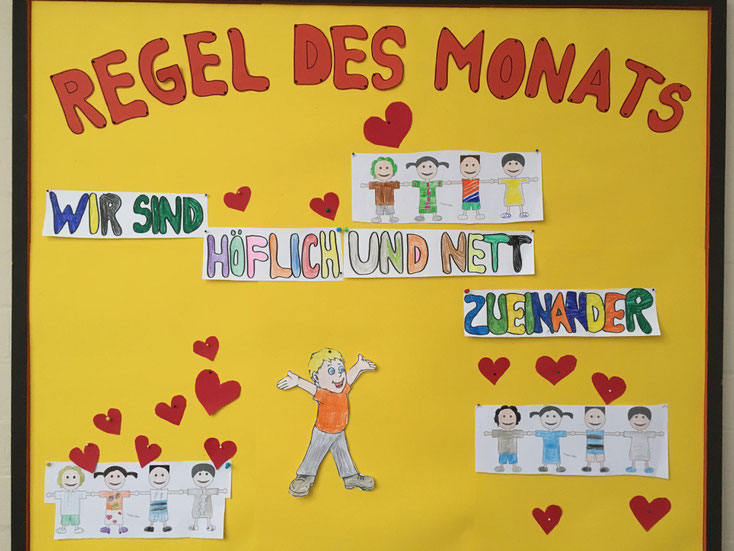 REGEL DES MONATS
WIR SIND
HÖFLICH UND NETT
ZUEINANDER